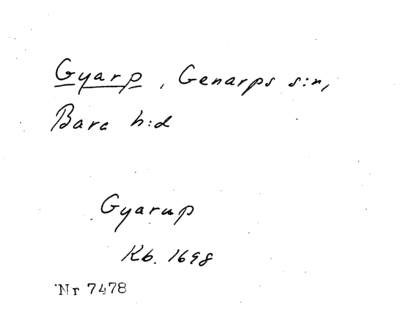 Gyarp, Genarps s:n,
Bara h:d
Gyarup
Kb. 1698
Nr 7478